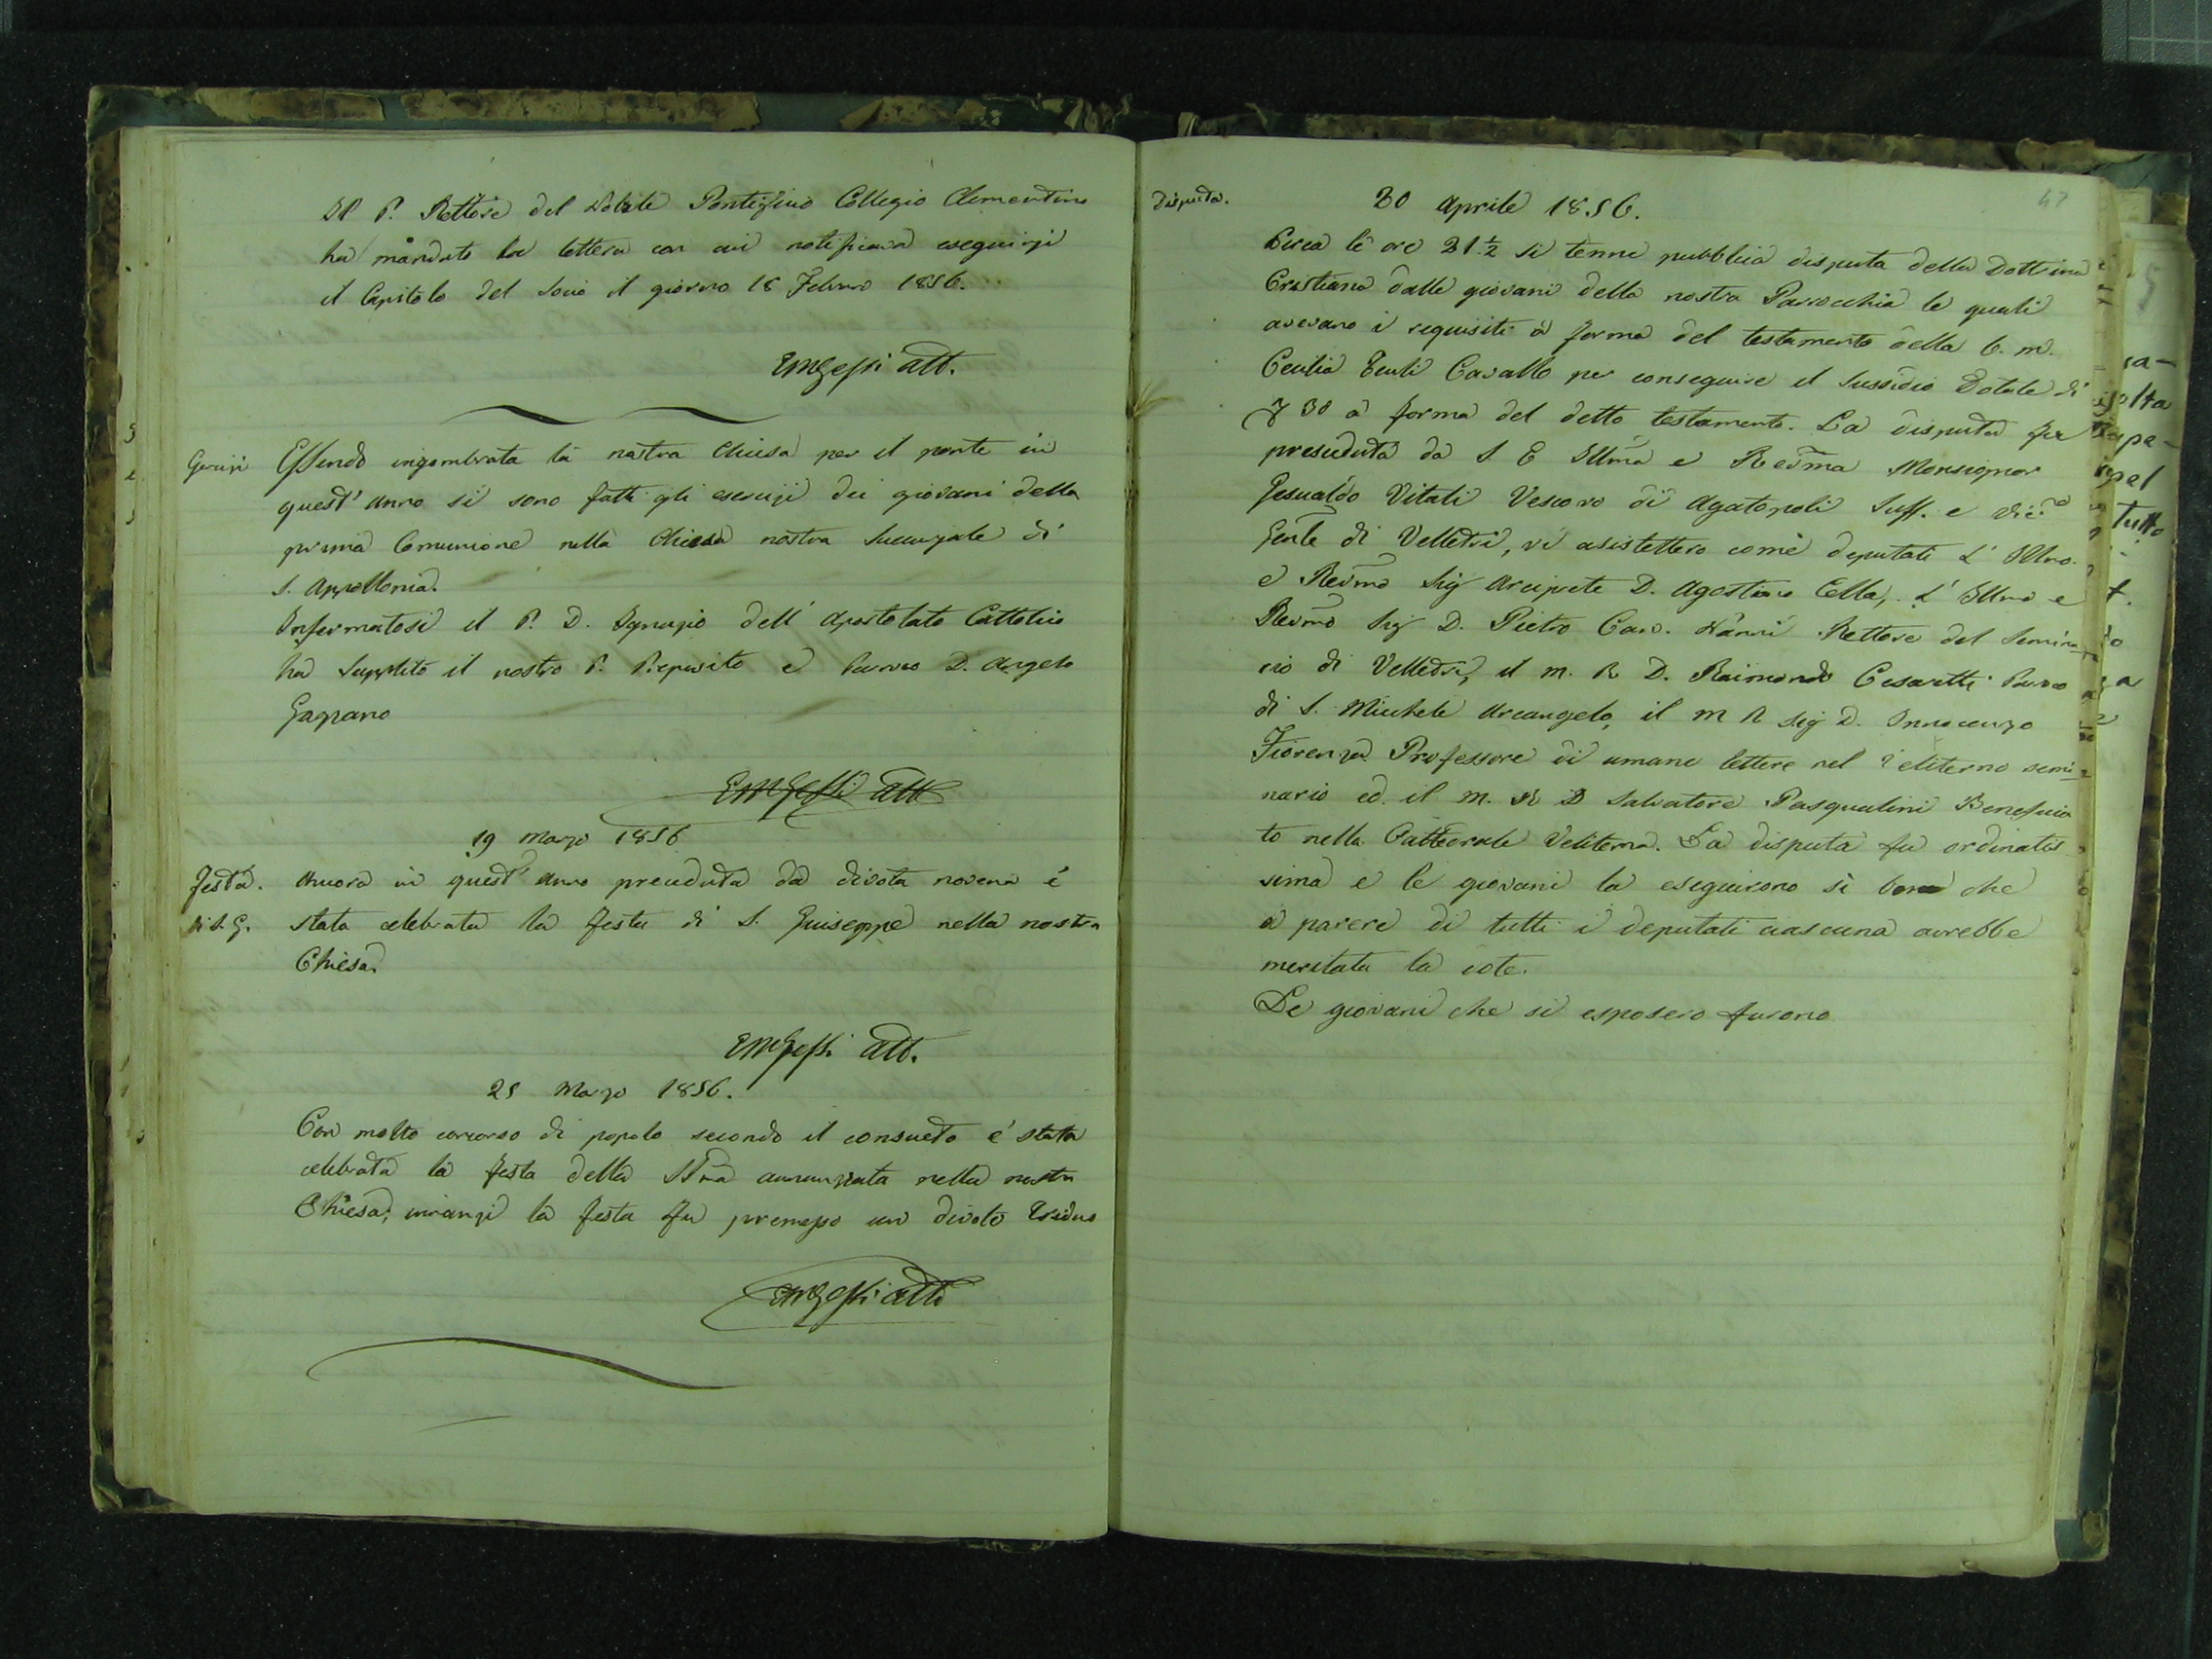 Il P. Rettore del Nobile Pontificio Collegio Clementino
ha mandato la lettera con cui notificava eseguirsi
il Capitolo del Socio il giorno 18 Febraro 1856.
EMGessi att.
Essendo ingombrata la nostra Chiesa per il ponte in
quest' anno si sono fatti gli esercizj dei giovani della
prima Comunione nella Chiesa nostra Succursale di
S. Appollonia.
Infermatosi il P. D. Ignazio dell' Apostolato Cattolico
ha supplito il nostro P. Preposito e Parroco D. Angelo
Gagnano
EMGessi att
19 Marzo 1856
Festa.
di S. G.
Ancora in quest' anno preceduta da divota novena é
stata celebrata la festa di S. Guiseppe nella nostra
Chiesa.
EMGessi att.
25 Marzo 1856.
Con molto concorso di popolo secondo il consueto é stata
celebrata la festa della SSma annunziata nella nostra
Chiesa; innanzi la festa fu premesso un divoto Triduo
EMGessi atto
47
Disputa.
30 Aprile 1856.
Circa le ore 21.½ si tenne pubblica disputa della Dottrina
Cristiana dalle giovani della nostra Parrocchia le quali
avevano i requisiti a forma del testamento della b. m.
Cecilia Teuli Cavallo per conseguire il Sussidio Dotale di
30 a forma del detto testamento. La disputa fu
presieduta da S. E Illma e Revma Monsignor
Gesualdo Vitali Vescovo di Agatopoli Suff. e Vic.
Gerle di Velletri, vi asistettero come deputati L' Illmo.
e Revmo Sig Arciprete D. Agostino Cella, L' Illmo e
Revmo Sig D. Pietro Can. Nanni Rettore del Semina-
rio di Velletri, il M. R D. Raimondo Cesaretti Parroco
di S. Michele Arcangelo, il M R Sig D. Innocenzo
Fiorenza Professore di umane lettere nel Veliterno semi-
nario ed il M. R D Salvatore Pasqualini Beneficia
to nella Cattedrale Veliterna. La disputa fu ordinatis
sima e le giovani la eseguirono si bene che
a parere di tutti i deputati ciascuna avrebbe
meritata la dote.
Le giovani che si esposero furono